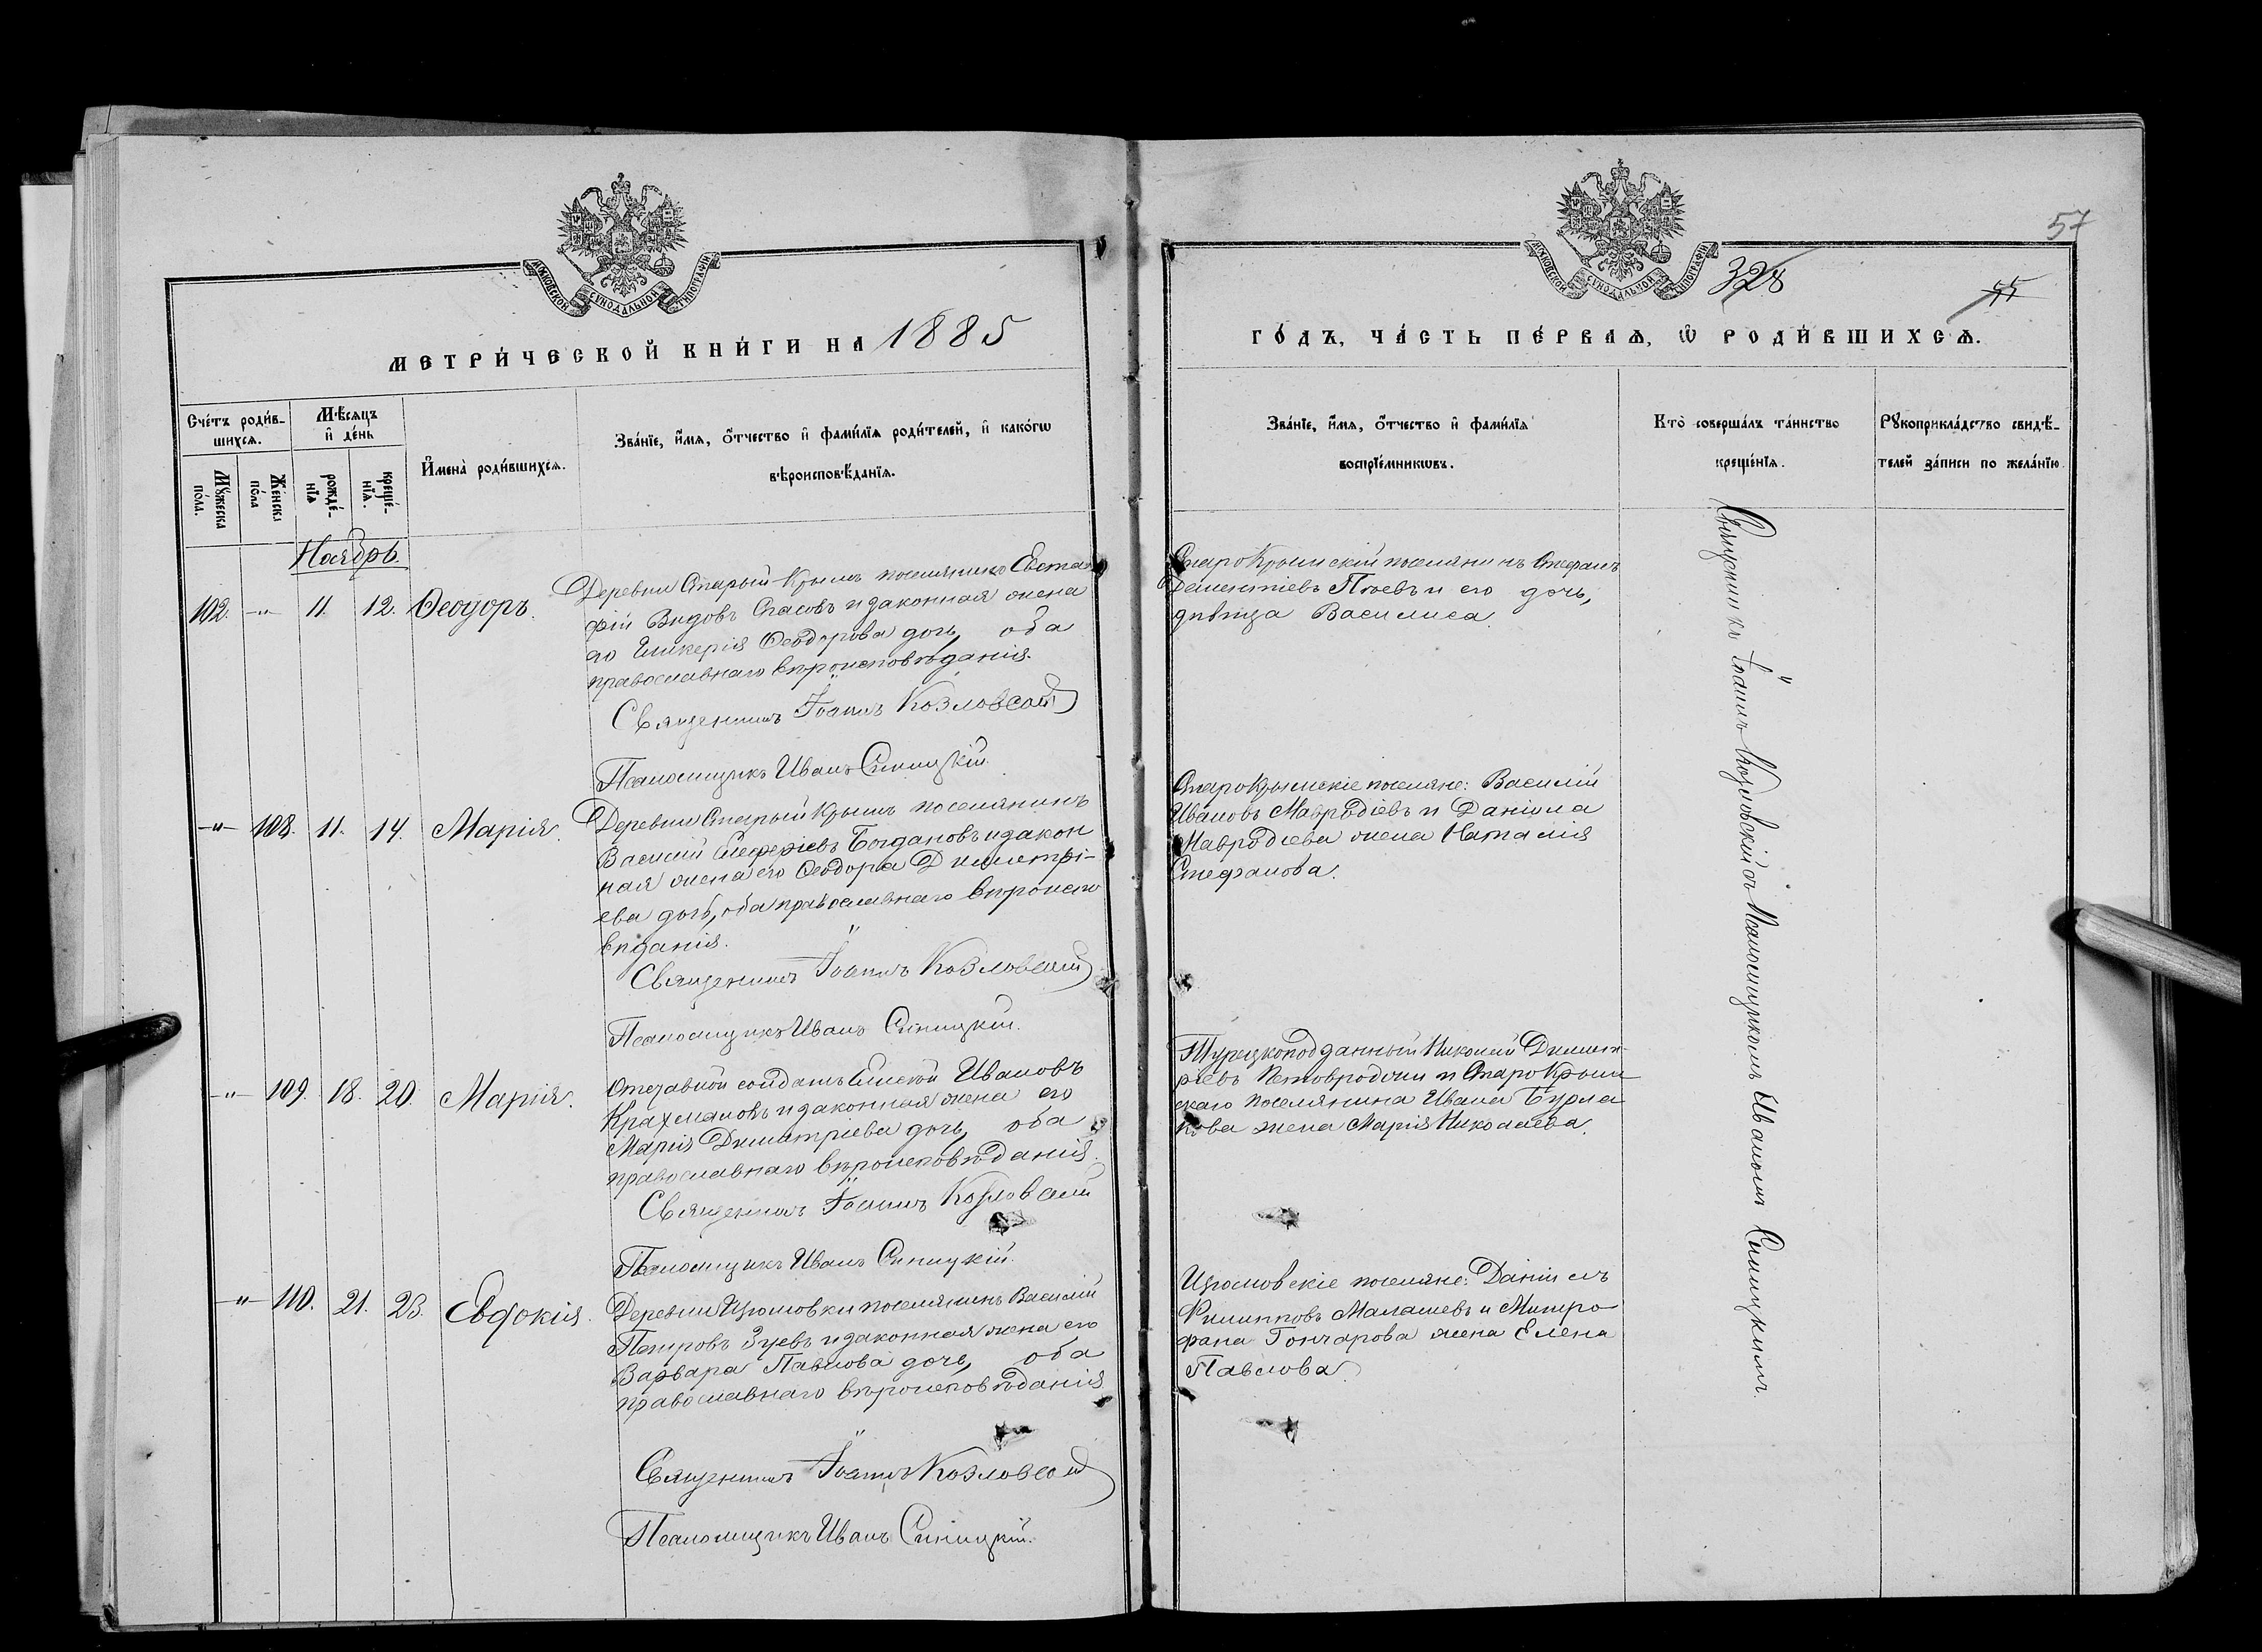 57
328
55
МОСКОВСКОЙ СѴНОДАЛЬНОЙ ТИПОГРАФІИ
МОСКОВСКОЙ СѴНОДАЛЬНОЙ ТИПОГРАФІИ
МЕТРИ́ЧЕСКОЙ КНИ́ГИ НА 1885
ГО́ДЪ, ЧА́СТЬ ПЕ́РВАѦ, Ѡ РОДИ́ВШИХСѦ.
Сче́тъ роди́в-
шихсѧ.
Мꙋ́жеска по́ла.
Же́нска по́ла
Мѣ́сѧцъ
и де́нь
рожде́-
нїѧ
креще́-
нїѧ.
Имена̀ роди́вшихсѧ.
Зва́нїе, и́мѧ, о́тчество и фами́лїѧ роди́телей, и како́гѡ
вѣроисповѣ́данїѧ.
Зва́нїе, и́мѧ, о́тчество и фами́лїѧ
воспрїе́мникѡвъ.
Кто̀ соверша́лъ та́инство
креще́нїѧ.
Рꙋкоприкла́дство свидѣ́-
телей за́писи по жела́нїю
Ноябрь.
102. -"- 11. 12. Ѳеодоръ.
Деревни Старый Крымъ поселянинъ Евста-
фій Видовъ Спасовъ и законная жена
его Гликерія Ѳеодорова дочь, оба
православнаго вѣроисповѣданія.
Священникъ Іоаннъ Козловскій
Псаломщикъ Иванъ Синицкій.
СтароКрымскій поселянинъ Стефанъ
дѣвица Василиса.
-"- 108. 11. 14. Марія.
Деревни Старый Крымъ поселянинъ
Василій Богдановъ и закон
ная жена его Ѳеодора Димитрі-
ева дочь, оба православнаго вѣроиспо
вѣданія.
Священникъ Іоаннъ Козловскій
Псаломщикъ Иванъ Синицкій.
СтароКрымскіе поселяне: Василій
Ивановъ Мавродіевъ и Даніила
Мавродіева жена Наталія
Стефанова.
-"- 109. 18. 20. Марія.
Отставной солдатъ Ивановъ
Крахмаловъ и законная жена его
Марія Димитріева дочь, оба
православнаго вѣроисповѣданія.
Священникъ Іоаннъ Козловскій
Псаломщикъ Иванъ Синицкій.
Турецкоподданный Николай Димит-
ріевъ и СтароКрым
скаго поселянина Ивана Бурла
кова жена Марія Николаева.
-"- 110. 21. 23. Евдокія.
Деревни Игнатовки поселянинъ Василій
Петровъ Зуевъ и законная жена его
Варвара Павлова дочь, оба
православнаго вѣроисповѣданія
Священникъ Іоаннъ Козловскій
Псаломщикъ Иванъ Синицкій.
поселяне: Даніилъ
Филипповъ Малашевъ и Митро
фана Гончарова жена Елена
Павлова.
Священникъ Іоаннъ Козловскій съ Псаломщикомъ Иваномъ Синицкимъ.